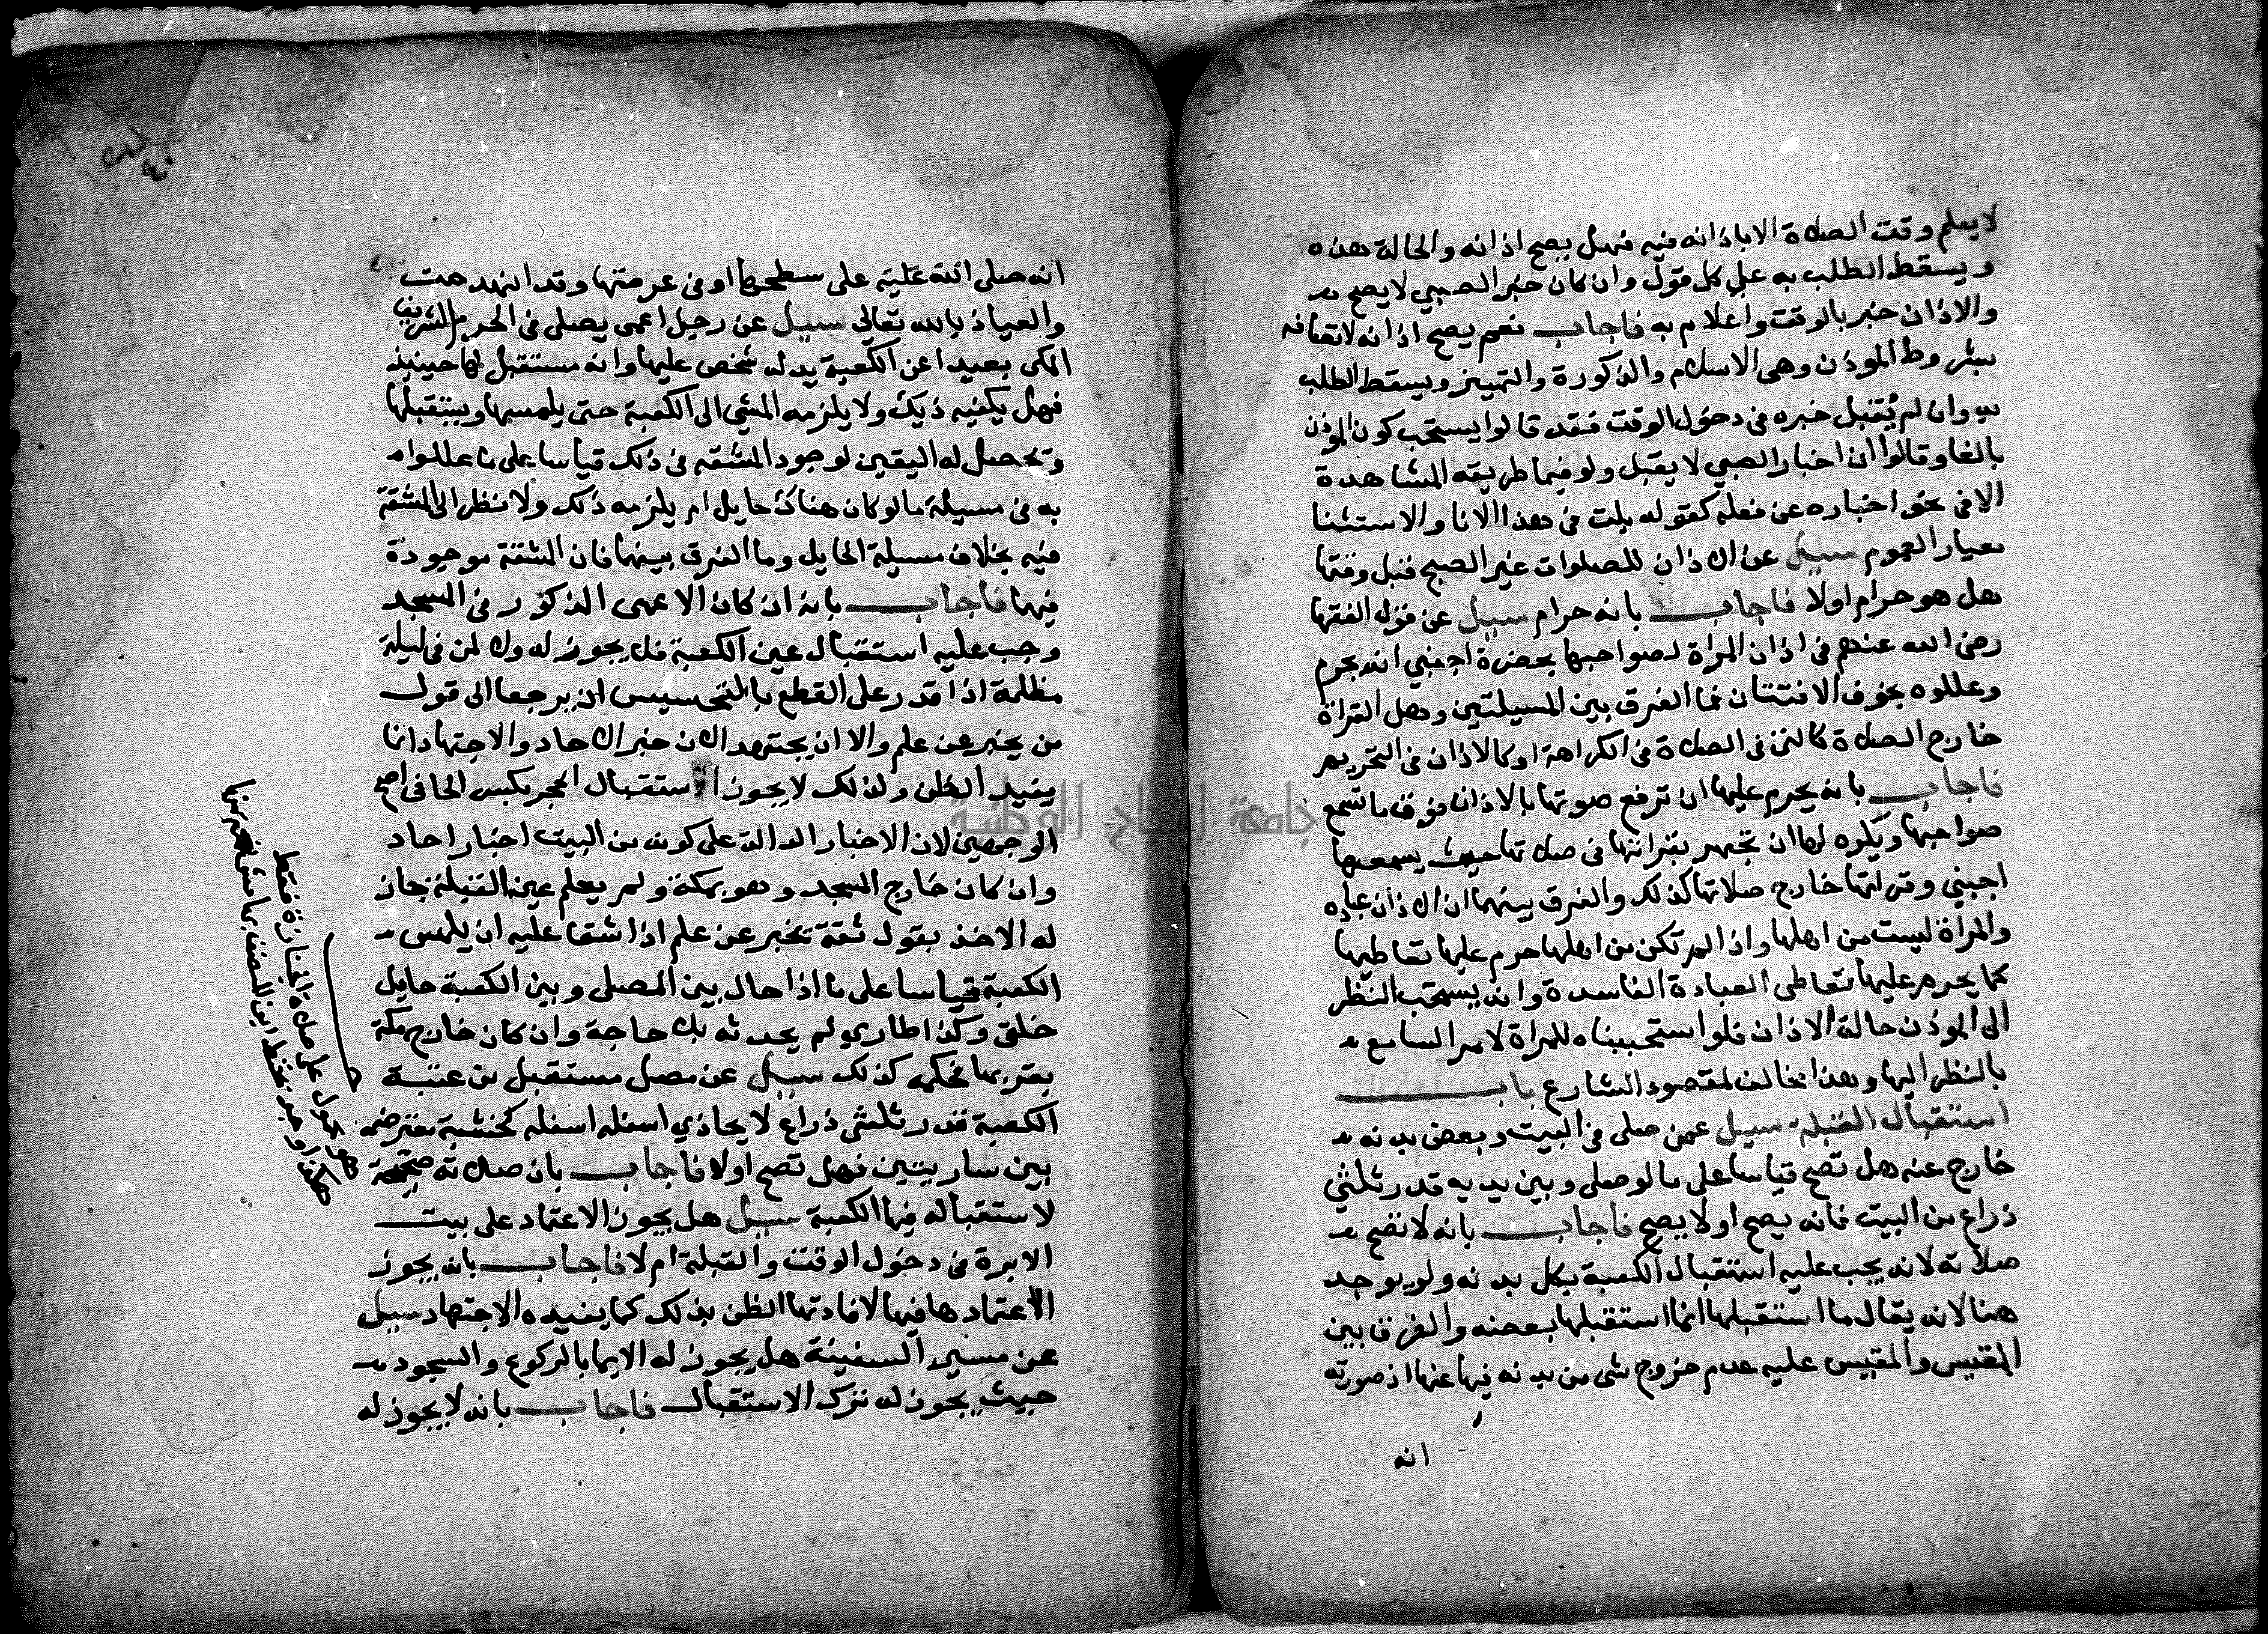 لا يعلم وقت الصلاة الا باذانه فيه فهل يصح اذانه والحالة هذه
ويسقط الطلب به على كل قول وان كان خبر الصبي لا يصح
والاذان خبر بالوقت واعلام به فاجاب نعم يصح اذانه لاتصافه
بشروط الموذن وهى الاسلام والذكورة والتمييز ويسقط الطلب
به وان لم يقبل خبره في دخول الوقت فقد قالوا يستحب كون الموذن
بالغا وقالوا ان اخبار الصبي لا يقبل ولو فيما طريقه المشاهدة
الا في نحو اخباره عن فعله كقوله بلت في هذا الانا والاستثنا
معيار العموم سيل عن الاذان للصلوات غير الصبح قبل وقتها
هل هو حرام اولا فاجاب بانه حرام سيل عن قول الفقها
رضى الله عنهم في اذان المراة لصواحبها بحضرة اجنبي انه يحرم
وعللوه بخوف الافتتان فما الفرق بين المسيلتين وهل القراة
خارج الصلاة كالتي في الصلاة في الكراهة او كالاذان في التحريم
فاجاب بانه يحرم عليها ان ترفع صوتها بالاذان فوق ما تسمع
صواحبها ويكره لها ان تجهر بقراتها في صلاتها حيث يسمعها
اجنبي وقراتها خارج صلاتها كذلك والفرق بينهما ان الاذان عبادة
والمراة ليست من اهلها واذا لم تكن من اهلها حرم عليها تعاطيها
كما يحرم عليها تعاطى العبادة الفاسدة وانه يستحب النظر
الى الموذن حالة الاذان فلو استحببناه للمراة لامر السامع
بالنظر اليها وهذا مخالف لمقصود الشارع باب
استقبال القبلة سيل عمن صلى في البيت وبعض بدنه
خارج عنه هل تصح قياسا على ما لو صلى وبين يديه قدر ثلثي
ذراع من البيت فانه يصح اولا يصح فاجاب بانه لا تصح
صلاته لانه يجب عليه استقبال الكعبة بكل بدنه ولم يوجد
هنا لانه يقال ما استقبلها انما استقبلها بعضه والفرق بين
المقيس والمقيس عليه عدم خروج شى من بدنه فيها عنها اذ صورته
انه
انه صلى الله عليه على سطحها او في عرصتها وقد انهدمت
والعياذ بالله تعالى سيل عن رجل اعمى يصلى في الحرم الشريف
المكى بعيدا عن الكعبة يدله شخص عليها وانه مستقبل لها حينيذ
فهل يكفيه ذلك ولا يلزمه المشى الى الكعبة حتى يلمسها ويستقبلها
وتحصل له اليقين لوجود المشقة في ذلك قياسا على ما عللوا
به في مسيلة ما لو كان هناك حايل ام يلزمه ذلك ولا نظر الى المشقة
فيه بخلاف مسيلة الحايل وما الفرق بينهما فان المشقة موجودة
فيها فاجاب بانه ان كان الاعمى المذكور في المسجد
وجب عليه استقبال عين الكعبة فلا يجوز له ولا لمن في ليلة
مظلمة اذا قدر على القطع بالتحسيس ان يرجعا الى قول
من يخبر عن علم والا ان يجتهد الان خبر الاحاد والاجتهاد انما
يفيد الظن ولذلك لا يجوز استقبال الحجر بكسر الحا في اصح
الوجهين لان الاخبار الدالة على كونه من البيت اخبار احاد
وان كان خارج المسجد وهو بمكة ولم يعلم عين القبلة جاز
له الاخذ بقول ثقة تخبر عن علم اذا شق عليه ان يلمس
الكعبة قياسا على ما اذا حال بين المصلى وبين الكعبة حايل
خلقى وكذا طارى لم يحدثه بلا حاجة وان كان خارج مكة
بقربها فحكمه كذلك سيل عن مصل مستقبل من عتبة
الكعبة قدر ثلثى ذراع لا يحاذي اسفله اسفله كخشبة معترضة
بين ساريتين فهل تصح اولا فاجاب بان صلاته صحيحة
لاستقباله فيها الكعبة سيل هل يجوز الاعتماد على بيت
الابرة في دخول الوقت والقبلة ام لا فاجاب بانه يجوز
الاعتماد ها فيها لافادتها الظن بذلك كما يفيده الاجتهاد سيل
عن مسير السفينة هل يجوز له الايما بالركوع والسجود
حيث يجوز له ترك الاستقبال فاجاب بانه لا يجوز له